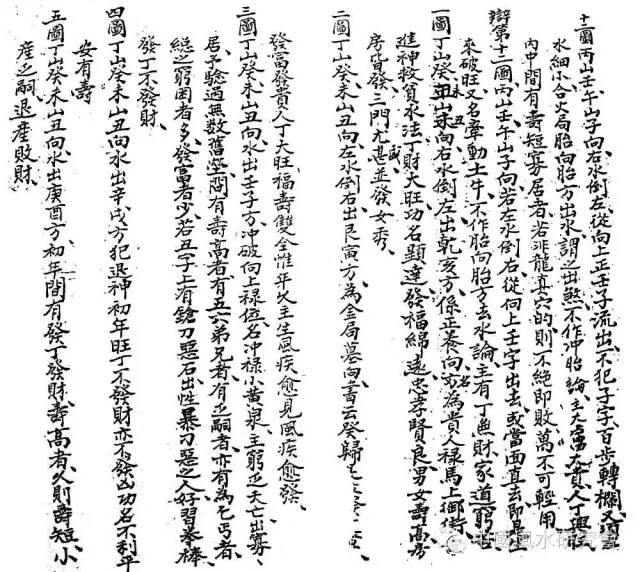 十一圖丙山壬午山子向右水倒左從向上正壬子流出不犯子字百步轉欄又須
水細小合火局胎向胎方出水謂之出煞不作冲胎論主大富大貴人丁興旺
內中間有壽短寡居者若非龍真穴的則不絕即敗萬不可輕用
辯第十二圖丙山壬午山子向若左水倒右從向上壬字出去或當面直去即是生
來破旺又名牽動土牛不作胎向胎方去水論主有丁無財家道窮苦
一圖丁山癸未山丑向右水倒左出乾亥方係正養向名為貴人祿馬上御街
進神救貧水法丁財大旺功名顯達發福綿遠忠孝賢良男女壽高房
房皆發三門尤盛甚並發女秀
二圖丁山癸未山丑向左水倒右出艮寅方為金局墓向書云癸歸
發富發貴人丁大旺福壽雙全惟年久主生風疾愈見風疾愈發
三圖丁山癸未山丑向水出壬子方冲破向上祿位名冲祿小黃泉主窮乏夭亡出寡
居予驗過無數舊塋間有壽高者有五六弟兄者有乏嗣者亦有為乞丐者
總之窮困者多發富者少若丑字上有鎗刀惡石出性暴刀惡之人好習拳棒
發丁不發財
四圖丁山癸未山丑向水出辛戌方犯退神初年旺丁不發財亦不發凶功名不利平
安有壽
五圖丁山癸未山丑向水出庚酉方初年間有發丁發財壽高者久則壽短小
產乏嗣退產敗財
中國風水研究會